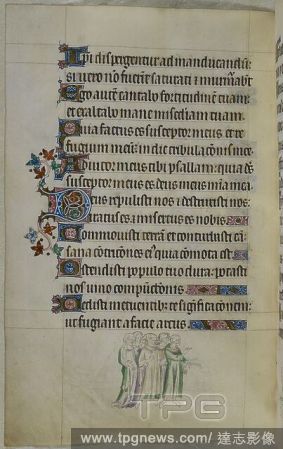 Ipi dispergentur ad manducandū:
si vero nō fuerīt saturati ⁊ murmᵃabūt
Ego autē cantabo fortitudinē tuam:
et exaltabo mane misc̄diam tuam
Quia factus es susceptor meus: et re
fugium meū: in die tribulacōis mee
Adiutor meus tibi psallam: quia ds̄
susceptor meus es: deus meus mīa mea
Deus repulisti nos ⁊ destruxisti nos:
iratus es ⁊ misertus es nobis
Commovisti terrā et conturbasti eā:
sana cōtriciones eiꝰ quia cōmota est
Ostendisti populo tuo dura: potasti
nos vino compūctionis
Dedisti metuentibꝫ te significacionem:
ut fugiant a facie arcus
TPG
www.tpgnews.com/ 達志影像